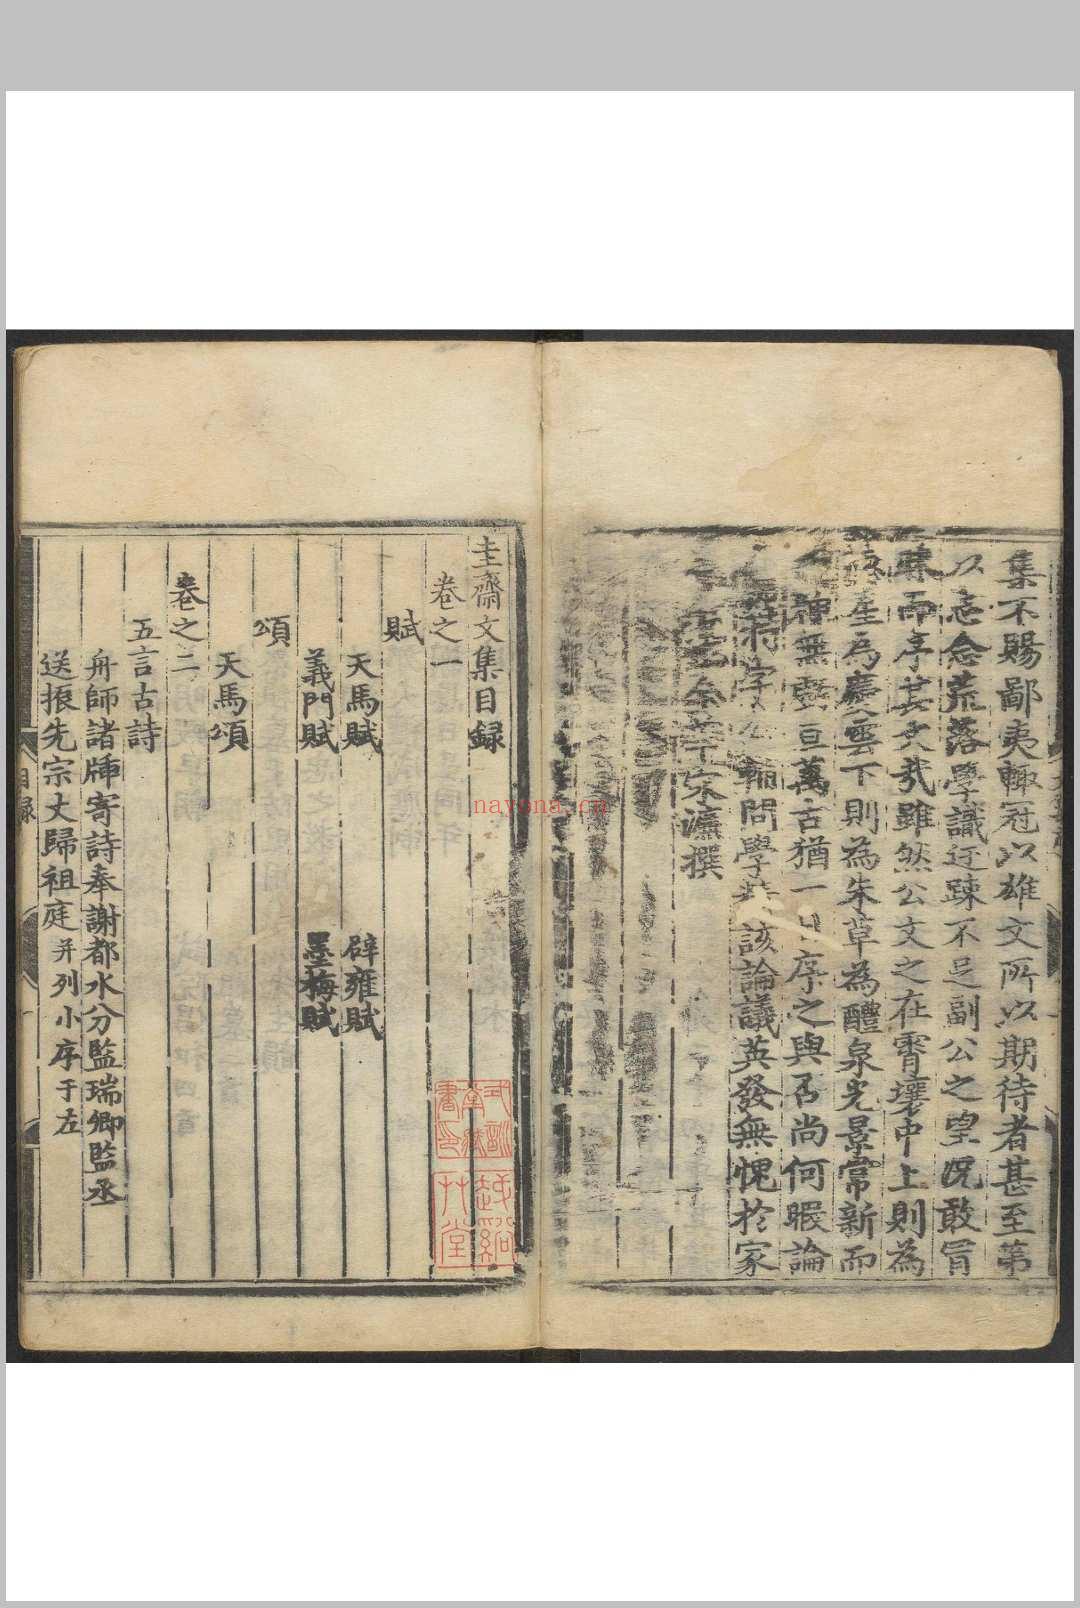 集不賜鄙夷輙冠以雄文所以期待者甚至第
以志念荒落學識迂踈不足副公之望況敢冐
而序其文哉雖然公文之在霄壤中上則為
星為慶雲下則為朱草為醴泉光景常新而
無聲亘萬古猶一日序之與否尚何暇論
字公輔問學該論議英發無愧於家
金華宋濂撰
圭齋文集目録
卷之一
賦
天馬賦 辟雍賦
義門賦 墨梅賦
頌
天馬頌
卷之二
五言古詩
舟師諸將寄詩奉謝都水分監瑞卿監丞
送振先宗丈歸祖庭并列小序于左
目録
nayona.cn